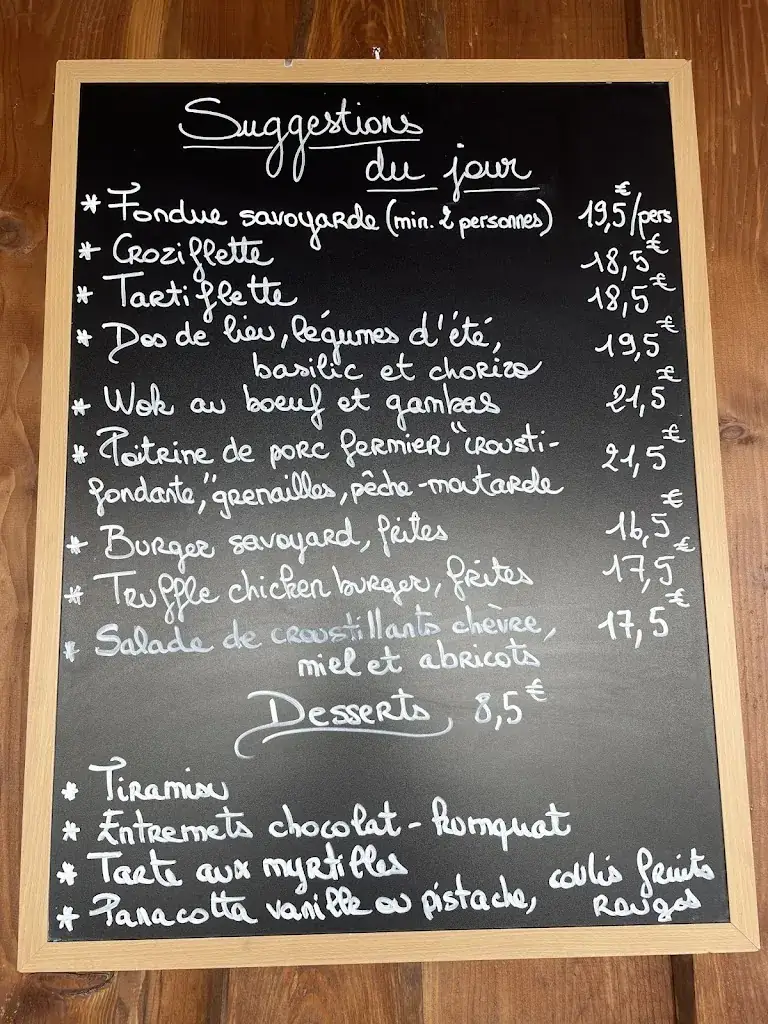 Suggestions
du jour
* Fondue savoyarde (min. 2 personnes) 19,5€/pers
* Croziflette 18,5€
* Tartiflette 18,5€
* Dos de lieu, légumes d'été, 19,5€
basilic et chorizo
* Wok au boeuf et gambas 21,5€
* Poitrine de porc fermier "crousti- 21,5€
fondante," grenailles, pêche-moutarde
* Burger savoyard, frites 16,5€
* Truffle chicken burger, frites 17,5€
* Salade de croustillants chèvre, 17,5€
miel et abricots
Desserts, 8,5€
* Tiramisu
* Entremets chocolat - kumquat
* Tarte aux myrtilles
* Panacotta vanille ou pistache, coulis fruits
rouges